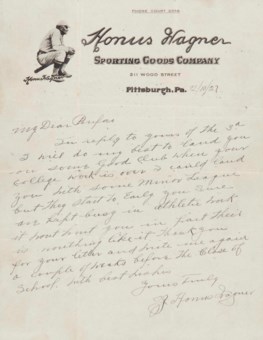 PHONE COURT 0276
Honus Wagner
SPORTING GOODS COMPANY
811 WOOD STREET
Pittsburgh, Pa.
My Dear
In reply to yours of the 3rd
I will do my best to land you
on some good Club when your
College work is over I could land
you with some Minor League
but they start to early you sure
are kept busy in Athletic work
it wont hurt you in fact their
is nothing like it thank you
for your letter and write me again
a couple of weeks before the close of
School with best wishes
Yours Truly
J Honus Wagner